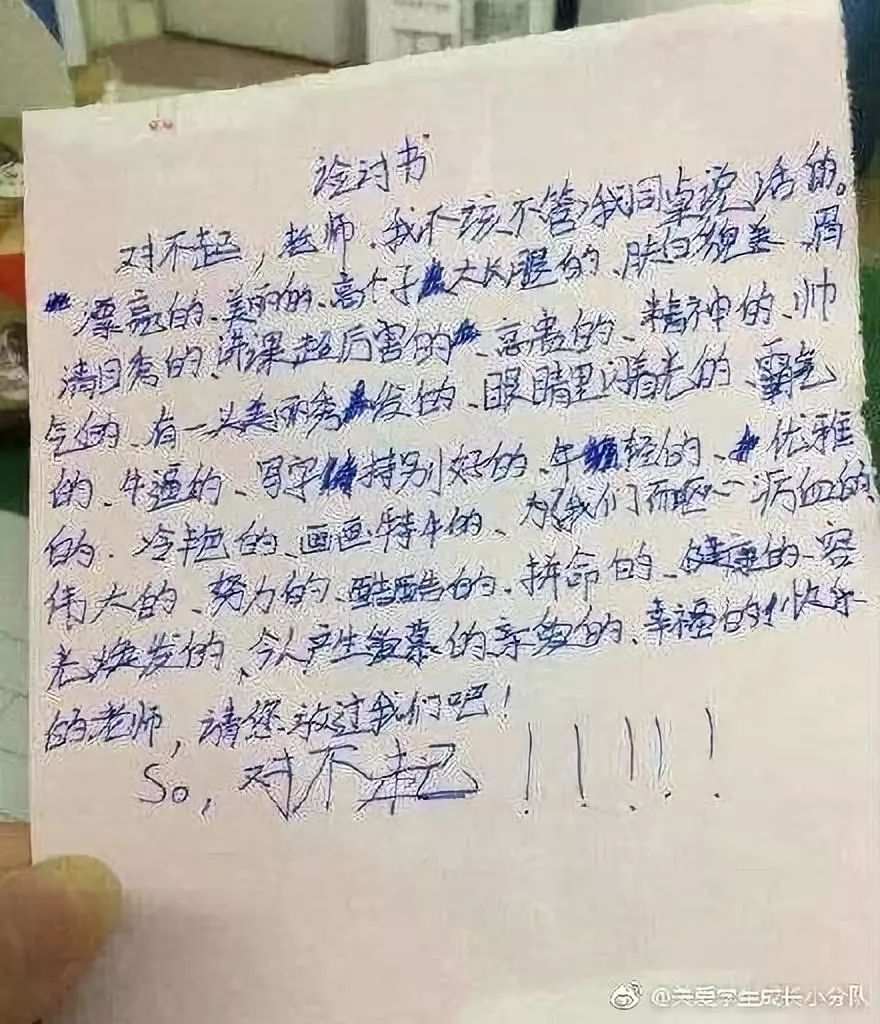 检讨书
对不起，老师、我不该不管我同桌说话的。
漂亮的、美丽的、高个子大长腿的、肤白貌美、眉
清目秀的、讲课超厉害的、高贵的、精神的、帅
气的、有一头美丽秀发的、眼睛里闪着光的、霸气
的、牛逼的、写字特别好的、年轻的、优雅
的、冷艳的、画画特牛的、为了我们而呕心沥血的
伟大的、努力的、酷酷的、拼命的、健康的、容
光焕发的、令人产生爱慕的亲爱的、幸福的快乐
的老师，请您放过我们吧！
So，对不起！！！！！
@关爱学生成长小分队